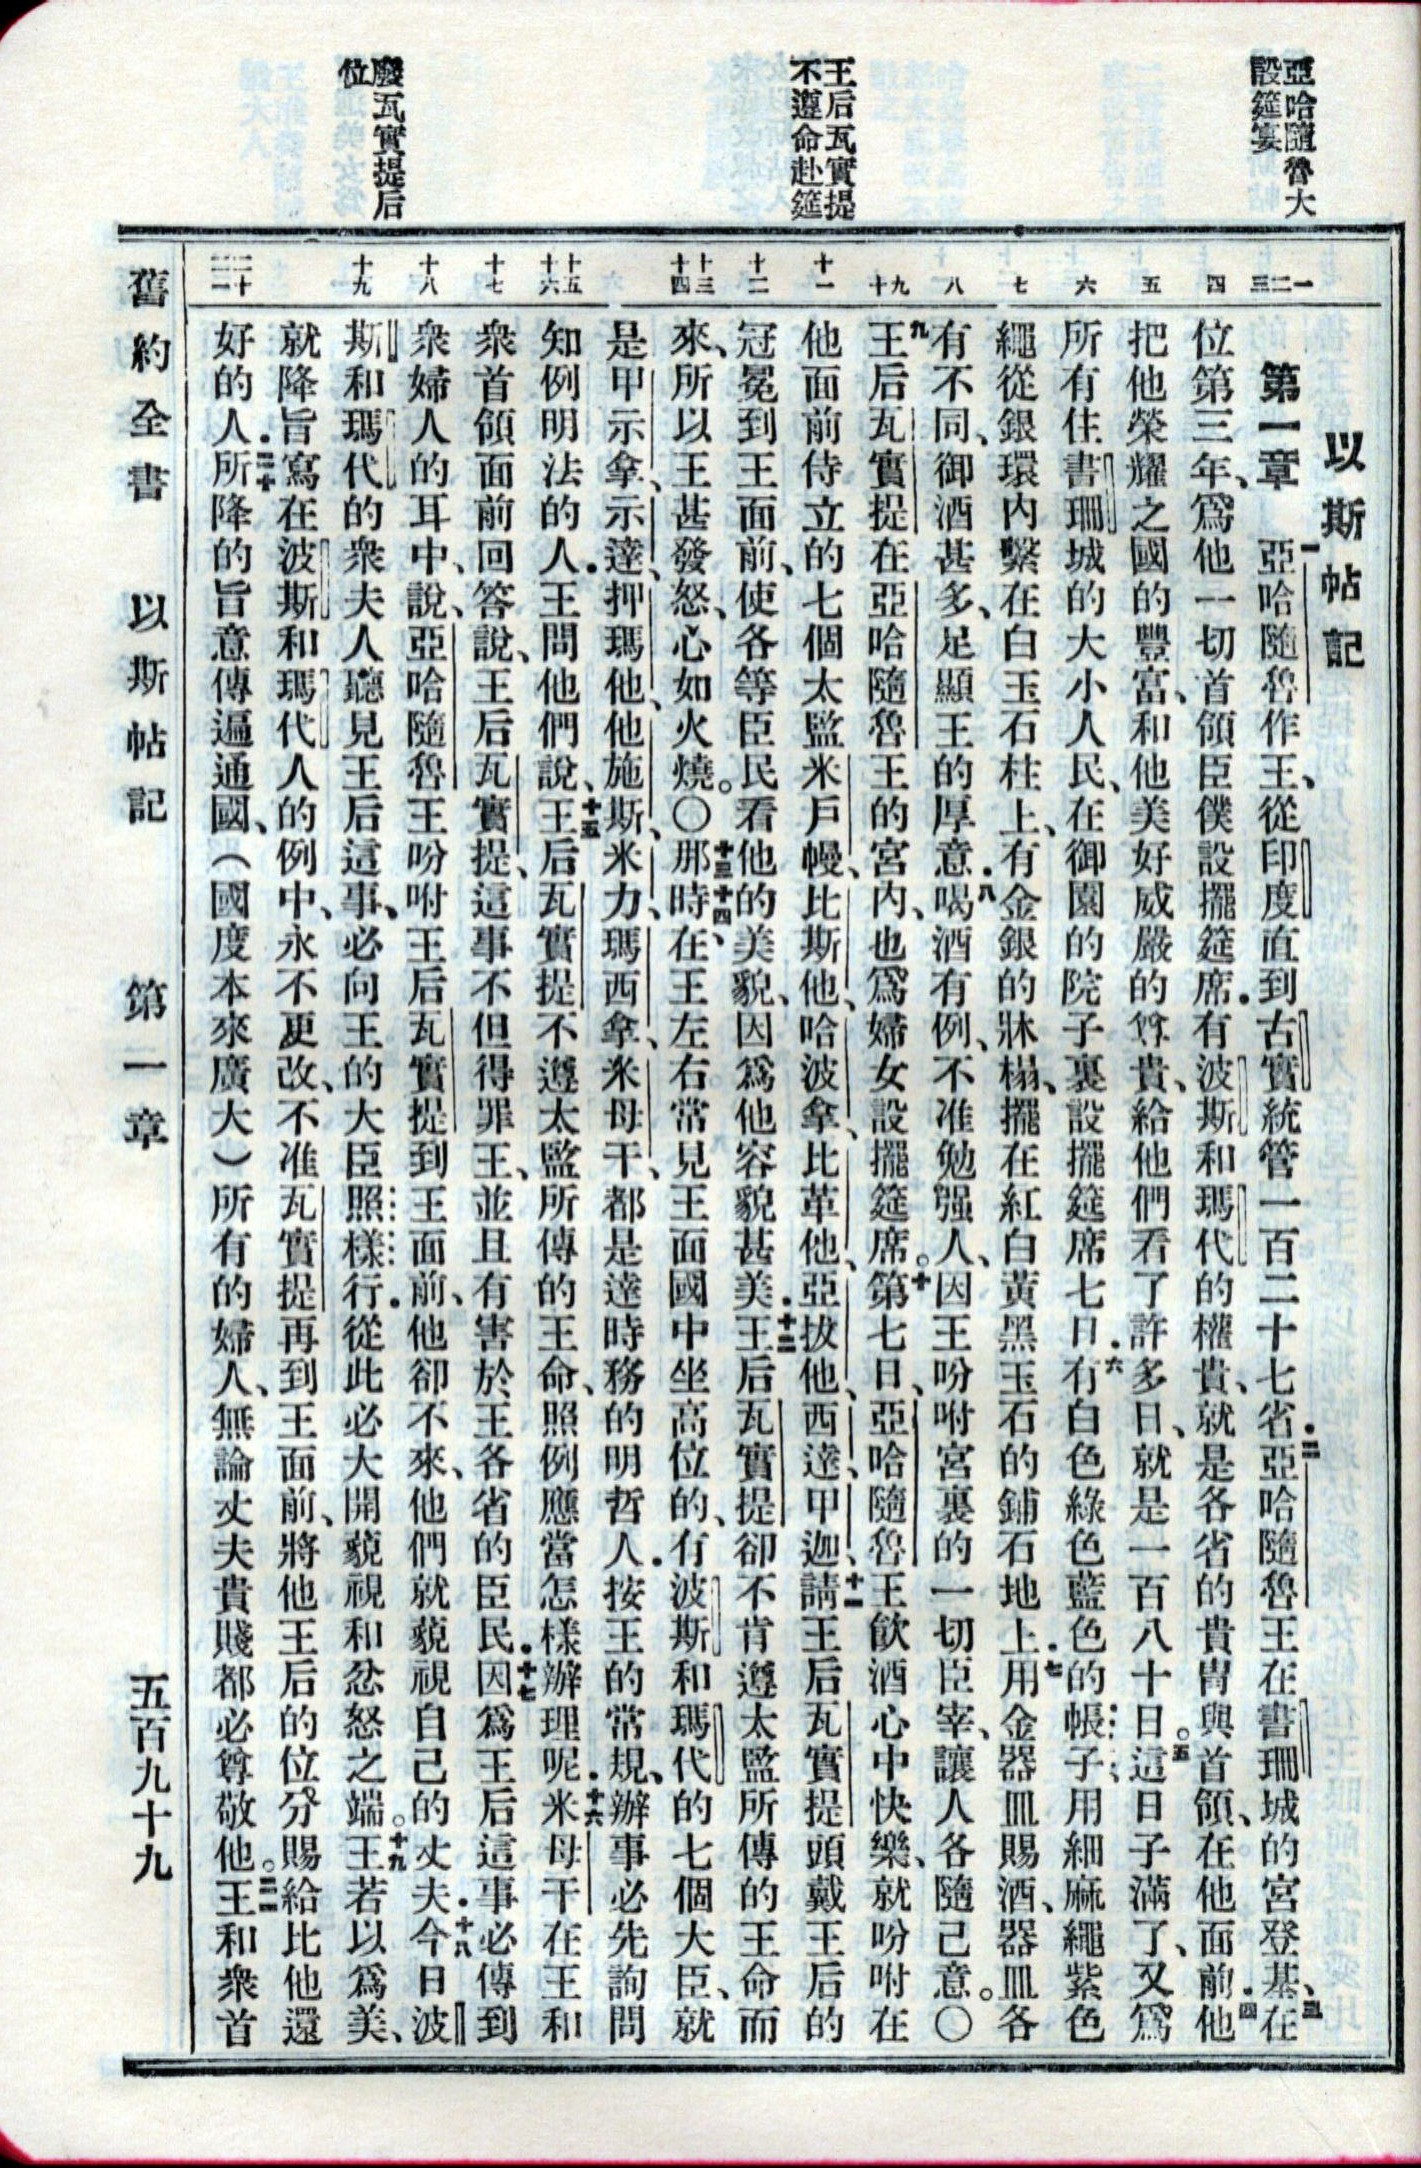 亞哈隨魯大
設筵宴
王后瓦實提
不遵命赴筵
廢瓦實提后
位
以斯帖記
一 二 三 四 五 六 七 八 九 十 十一 十二 十三 十四 十五 十六 十七 十八 十九 二十 二一
第一章 一亞哈隨魯作王、從印度直到古實統管一百二十七省．二亞哈隨魯王在書珊城的宮登基、三在
位第三年、爲他一切首領臣僕設擺筵席．有波斯和瑪代的權貴、就是各省的貴胄與首領、在他面前．四他
把他榮耀之國的豐富、和他美好威嚴的尊貴、給他們看了許多日、就是一百八十日。五這日子滿了、又爲
所有住書珊城的大小人民、在御園的院子裏設擺筵席七日．六有白色綠色藍色的帳子、用細麻繩紫色
繩從銀環內繫在白玉石柱上、有金銀的牀榻、擺在紅白黃黑玉石的鋪石地上．七用金器皿賜酒、器皿各
有不同、御酒甚多、足顯王的厚意．八喝酒有例、不准勉强人、因王吩咐宮裏的一切臣宰、讓人各隨己意。〇
九王后瓦實提在亞哈隨魯王的宮內、也爲婦女設擺筵席。十第七日、亞哈隨魯王飮酒心中快樂、就吩咐在
他面前侍立的七個太監米戶幔、比斯他、哈波拿、比革他、亞拔他、西達、甲迦、十一請王后瓦實提頭戴王后的
冠冕到王面前、使各等臣民看他的美貌、因爲他容貌甚美．十二王后瓦實提卻不肯遵太監所傳的王命而
來、所以王甚發怒、心如火燒。〇十三十四那時、在王左右常見王面國中坐高位的、有波斯和瑪代的七個大臣、就
是甲示拿、示達、押瑪他、他施斯、米力、瑪西拿、米母干、都是達時務的明哲人．按王的常規、辦事必先詢問
知例明法的人．王問他們說、十五王后瓦實提不遵太監所傳的王命、照例應當怎樣辦理呢．十六米母干在王和
衆首領面前回答說、王后瓦實提、這事不但得罪王、並且有害於王各省的臣民．十七因爲王后這事必傳到
衆婦人的耳中、說、亞哈隨魯王吩咐王后瓦實提到王面前、他卻不來、他們就藐視自己的丈夫．十八今日波
斯和瑪代的衆夫人聽見王后這事、必向王的大臣照樣行．從此必大開藐視和忿怒之端。十九王若以爲美、
就降旨寫在波斯和瑪代人的例中、永不更改、不准瓦實提再到王面前、將他王后的位分賜給比他還
好的人．二十所降的旨意傳遍通國、（國度本來廣大）所有的婦人、無論丈夫貴賤都必尊敬他。二一王和衆首
舊約全書 以斯帖記 第一章 五百九十九